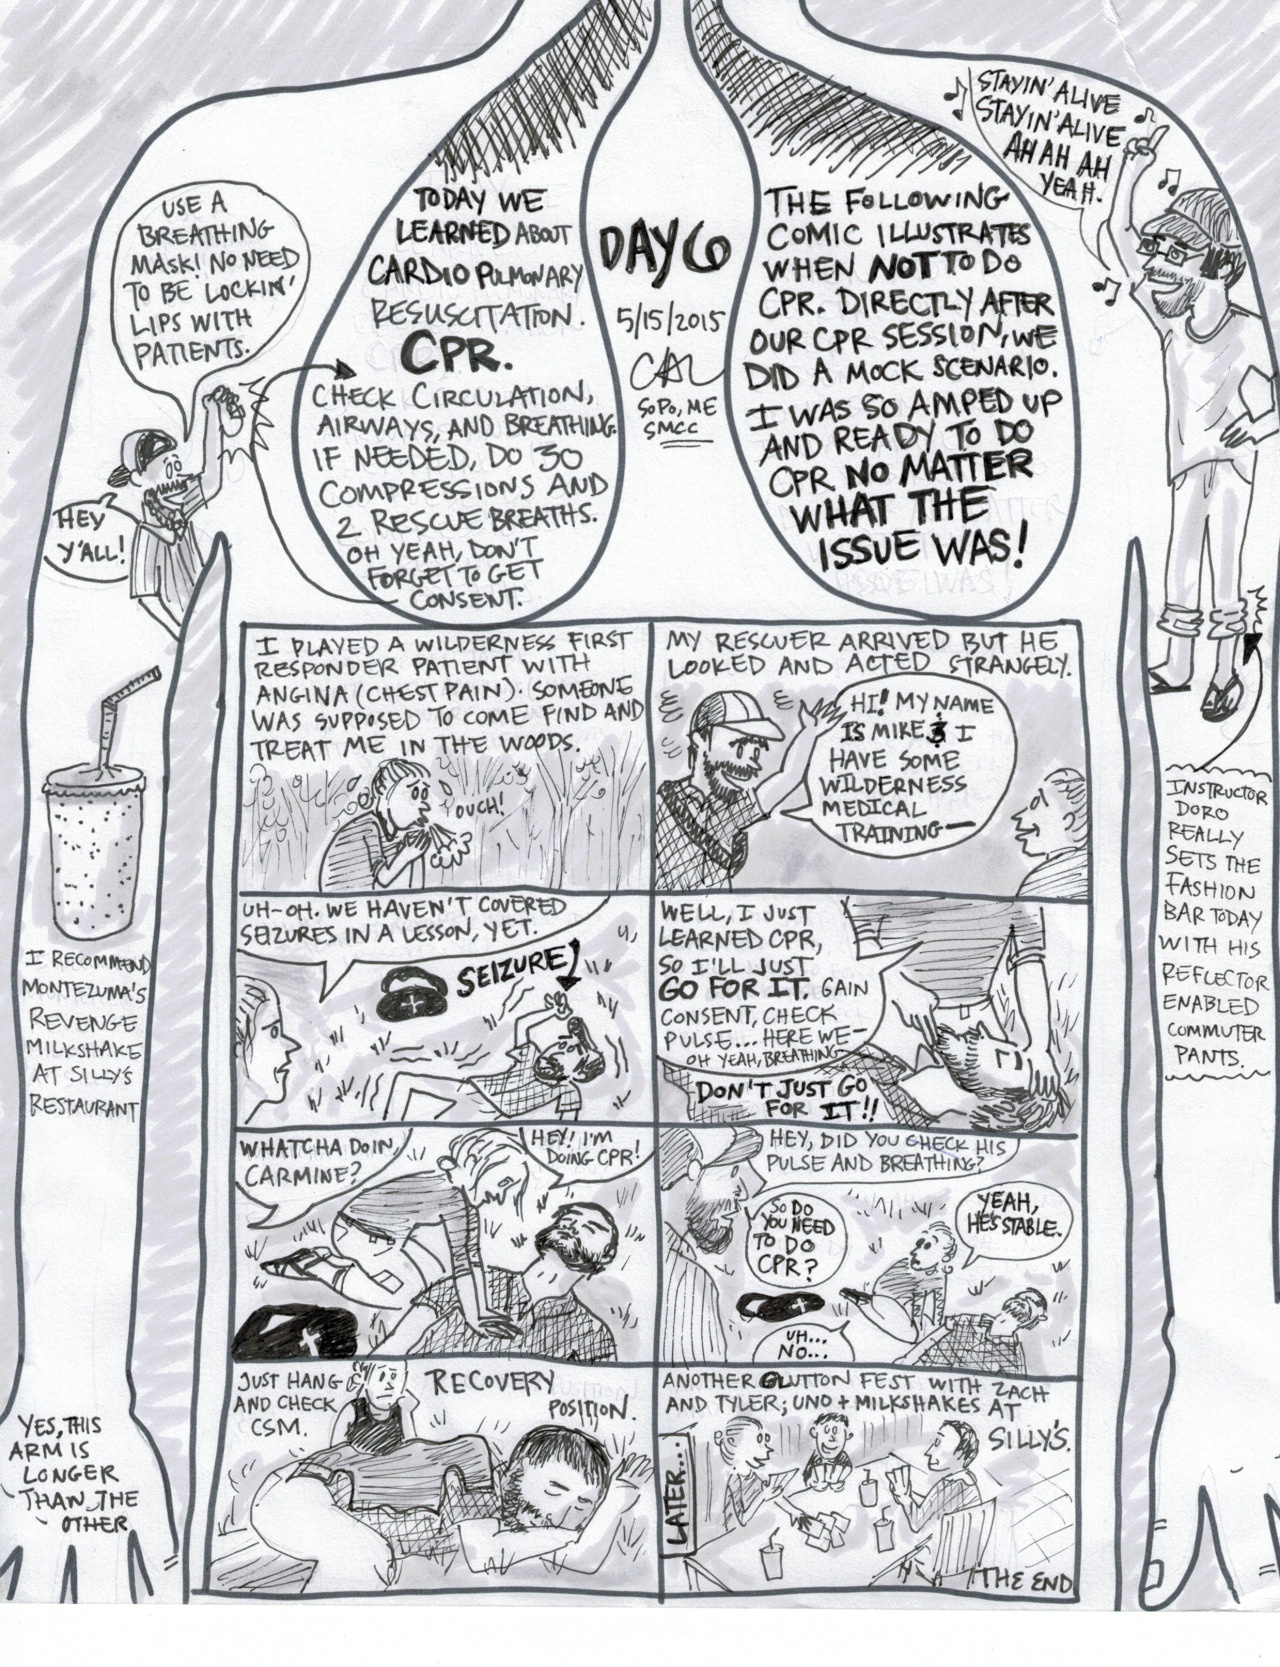 STAYIN' ALIVE
STAYIN' ALIVE
AH AH AH
YEAH.
USE A
BREATHING
MASK! NO NEED
TO BE 'LOCKIN'
LIPS WITH
PATIENTS.
HEY
Y'ALL!
TODAY WE
LEARNED ABOUT
CARDIO PULMONARY
RESUSCITATION.
CPR.
CHECK CIRCULATION,
AIRWAYS, AND BREATHING.
IF NEEDED, DO 30
COMPRESSIONS AND
2 RESCUE BREATHS.
OH YEAH, DON'T
FORGET TO GET
CONSENT.
DAY 6
5/15/2015
CAL
SOPO, ME
SMCC
THE FOLLOWING
COMIC ILLUSTRATES
WHEN NOT TO DO
CPR. DIRECTLY AFTER
OUR CPR SESSION, WE
DID A MOCK SCENARIO.
I WAS SO AMPED UP
AND READY TO DO
CPR NO MATTER
WHAT THE
ISSUE WAS!
I PLAYED A WILDERNESS FIRST
RESPONDER PATIENT WITH
ANGINA (CHEST PAIN). SOMEONE
WAS SUPPOSED TO COME FIND AND
TREAT ME IN THE WOODS.
OUCH!
MY RESCUER ARRIVED BUT HE
LOOKED AND ACTED STRANGELY.
HI! MY NAME
IS MIKE & I
HAVE SOME
WILDERNESS
MEDICAL
TRAINING—
UH-OH. WE HAVEN'T COVERED
SEIZURES IN A LESSON, YET.
SEIZURE!
WELL, I JUST
LEARNED CPR,
SO I'LL JUST
GO FOR IT. GAIN
CONSENT, CHECK
PULSE... HERE WE—
OH YEAH, BREATHING—
DON'T JUST GO
FOR IT!!
WHATCHA DOIN,
CARMINE?
HEY! I'M
DOING CPR!
HEY, DID YOU CHECK HIS
PULSE AND BREATHING?
YEAH,
HE'S STABLE.
SO DO
YOU NEED
TO DO
CPR?
UH...
NO...
JUST HANG
AND CHECK
CSM.
RECOVERY
POSITION.
ANOTHER GLUTTON FEST WITH ZACH
AND TYLER; UNO + MILKSHAKES AT
SILLY'S.
LATER...
THE END
I RECOMMEND
MONTEZUMA'S
REVENGE
MILKSHAKE
AT SILLY'S
RESTAURANT
YES, THIS
ARM IS
LONGER
THAN THE
OTHER
INSTRUCTOR
DORO
REALLY
SETS THE
FASHION
BAR TODAY
WITH HIS
REFLECTOR
ENABLED
COMMUTER
PANTS.